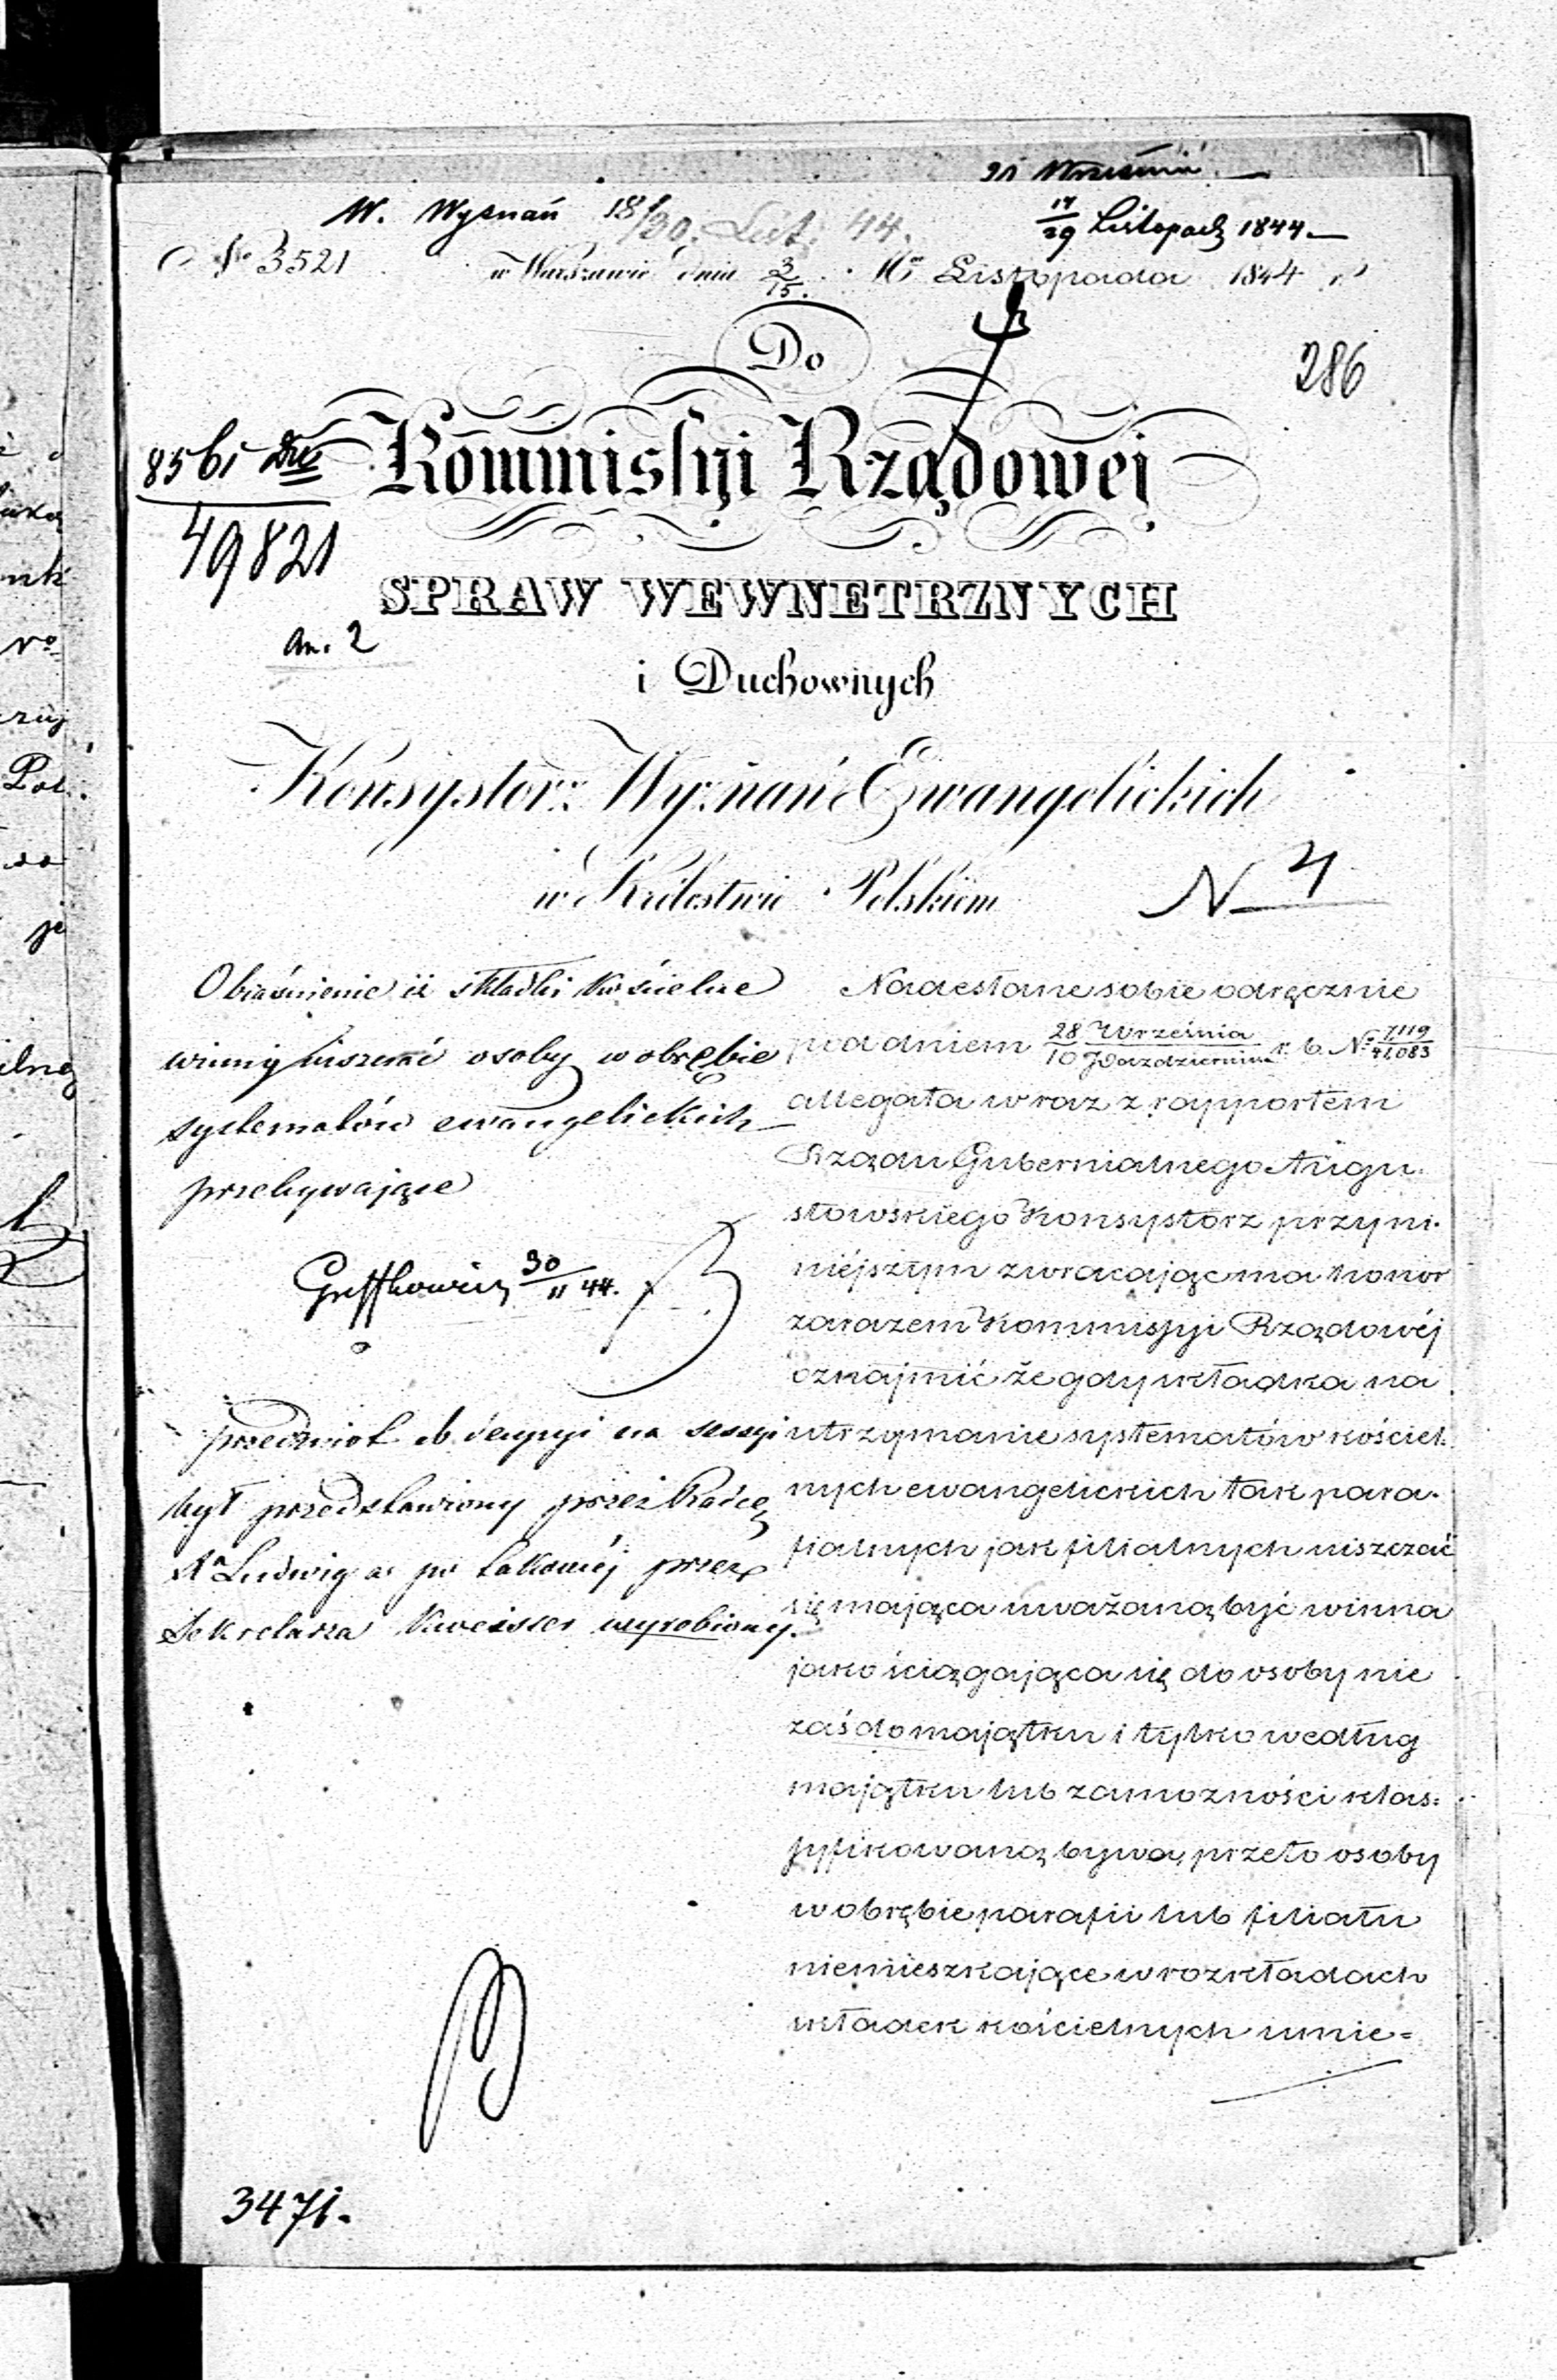 W. Wyznań 18/30. List. 44.
17/29 Listopada 1844.
No 3521
w Warszawie dnia 3/15. Mca Listopada 1844 r.
Do
286
Kommissyi Rządowej
8561
49821
SPRAW WEWNETRZNYCH
An. 2
i Duchownych
Konsystorz Wyznań Ewangelickich
w Królestwie Polskiem
N 4
Obiaśnienie iż składki kościelne
winny uiszczać osoby w obrębie
systematów ewangelickich
przebywające
30/11 44.
przedmiot ob deupyi na sessyi
był przedstawiony przez Radcę
Ludwig a po takowéj przez
Sekretarza Kweisser wyrobiony.
3471.
Nadesłane sobie odręcznie
pod dniem 28 Września/10 Października r. b. No 7119/41,083
allegata wraz z rapportem
Rządu Gubernialnego Augu-
stowskiego Konsystorz przy ni-
niéjszym zwracając ma honor
zarazem Kommissyi Rządowéj
oznajmić że gdy składka na
utrzymanie systematów kościel-
nych ewangelickich tak para-
fialnych jak filialnych uiszczać
się mająca uważaną być winna
jako ściągająca się do osoby nie
zaś do majątku i tylko według
majątku lub zamożności klas-
syfikowaną bywa, przeto osoby
w obrębie parafii lub filiału
niemieszkające w rozkładach
składek kościelnych umie=